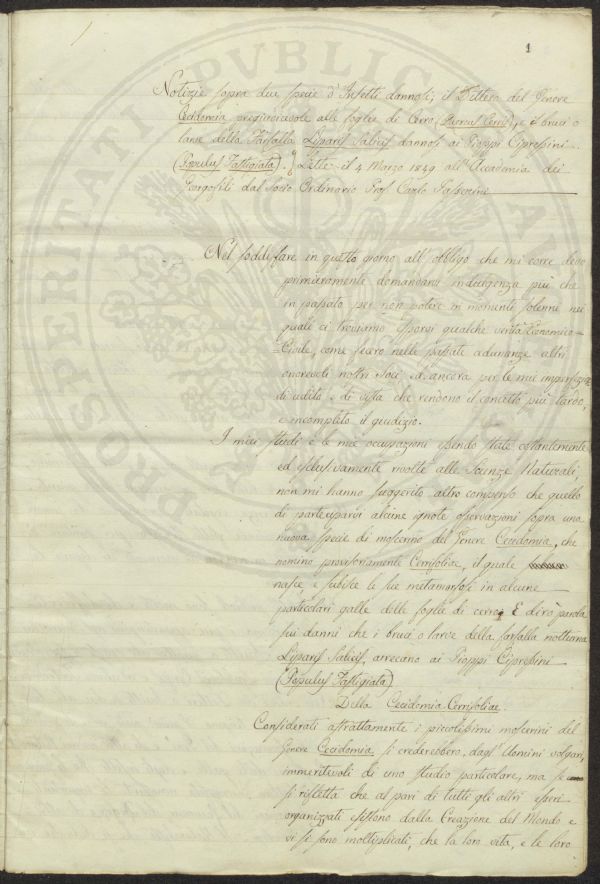 1
Notizie sopra due specie d'Insetti dannosi; il Dittero del Genere
Cecidomia pregiudicevole alle foglie di Cerro, (Quercus Cerris), e i bruci o
larve della Farfalla Liparis Salicis dannosi ai Pioppi Cipressini
(Populus Fastigiata). Lette il 4 Marzo 1849 all'Accademia dei
Georgofili dal Socio Ordinario Prof. Carlo Passerini
Nel soddisfare in questo giorno all'obbligo che mi corre devo
primieramente domandarvi indulgenza più che
in passato per non potere in momenti solenni nei
quali ci troviamo esporvi qualche verità Economico=
=Civile, come fecero nelle passate adunanze altri
onorevoli nostri Soci ed ancora per le mie imperfezioni
di udito e di vista che rendono il concetto più tardo,
e incompleto il giudizio.
I miei studi e le mie occupazioni essendo state costantemente
ed esclusivamente rivolte alle Scienze Naturali
non mi hanno suggerito altro compenso che quello
di parteciparvi alcune ignote osservazioni sopra una
nuova specie di moscerino del Genere Cecidomia, che
nomino provvisoriamente Cerrisfoliae, il quale
nasce, e subisce le sue metamorfosi in alcune
particolari galle delle foglie di cerro. E dirò parola
sui danni che i bruci o larve della farfalla notturna
Liparis Salicis, arrecano ai Pioppi Cipressini
(Populus Fastigiata)
Della Cecidomia Cerrisfoliae.
Considerati astrattamente i piccolissimi moscerini del
Genere Cecidomia si crederebbero, dagl'Uomini volgari,
immeritevoli di uno studio particolare, ma se
si rifletta che al pari di tutti gli altri esseri
organizzati esistono dalla Creazione del Mondo e
vi si sono moltiplicati, che la loro vita, e le loro
PROSPERITATI PVBLICAE